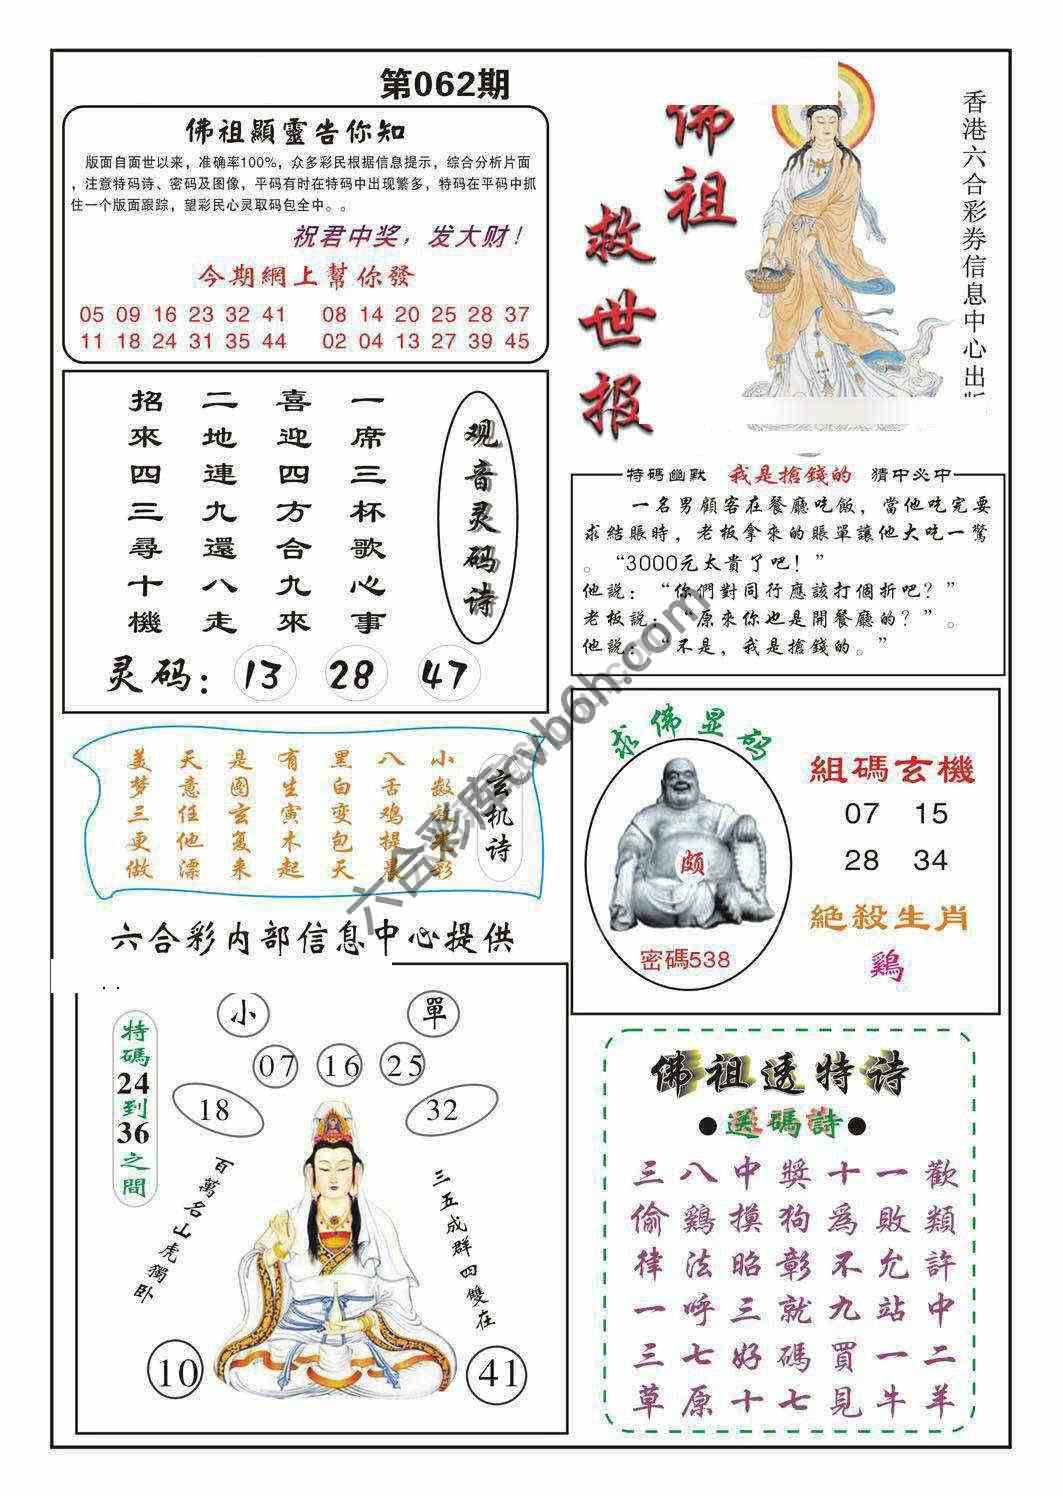 第062期
佛祖顯靈告你知
版面自面世以来，准确率100%，众多彩民根据信息提示，综合分析片面
，注意特码诗、密码及图像，平码有时在特码中出现繁多，特码在平码中抓
住一个版面跟踪，望彩民心灵取码包全中。。
祝君中奖，发大财！
今期網上幫你發
05 09 16 23 32 41 08 14 20 25 28 37
11 18 24 31 35 44 02 04 13 27 39 45
佛祖
救世报
香港六合彩券信息中心出版
观音灵码诗
一席三杯歌心事
喜迎四方合九來
二地連九還八走
招來四三尋十機
灵码：13 28 47
特碼幽默 我是搶錢的 猜中必中
一名男顧客在餐廳吃飯，當他吃完要
求結賬時，老板拿來的賬單讓他大吃一驚
。“3000元太貴了吧！”
他説：“你們對同行應該打個折吧？”
老板説：“原來你也是開餐廳的？”。
他説：“不是，我是搶錢的。”
玄机诗
小数
八舌鸡提景
黑白变包天
有生寅木起
是图玄复来
天意任他漂
美梦三更做
六合彩内部信息中心提供
求佛显码
頗
密碼538
組碼玄機
07 15
28 34
絶殺生肖
鷄
小 單
07 16 25
18 32
特碼24到36之間
百萬名山虎獨卧
三五成群四雙在
10 41
佛祖透特诗
●送碼詩●
三八中獎十一歡
偷鷄摸狗爲敗類
律法昭彰不允許
一呼三就九站中
三七好碼買一二
草原十七見牛羊
六合彩库cvboh.com